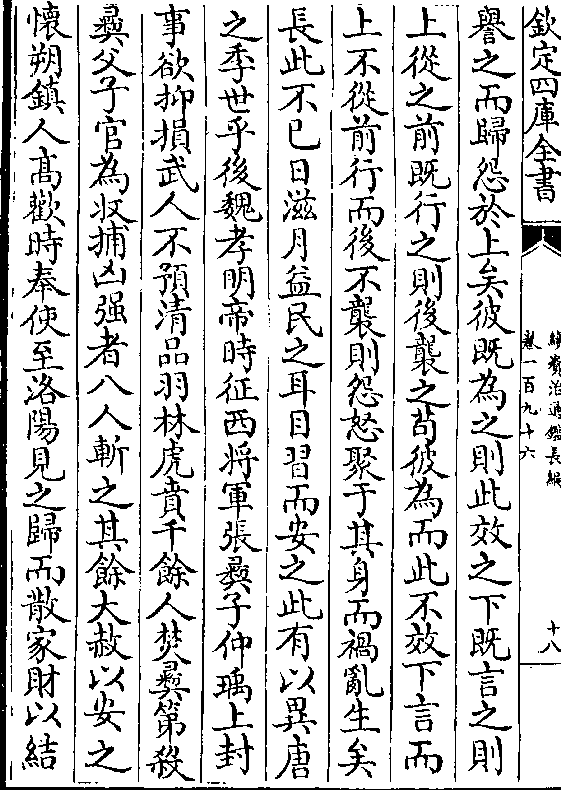 欽定四庫全書
續資治通鑑長編
卷一百九十六
十八
譽之而歸怨於上矣彼既為之則此效之下既言之則
上從之前既行之則後襲之苟彼為而此不效下言而
上不從前行而後不襲則怨怒聚于其身而禍亂生矣
長此不已日滋月益民之耳目習而安之此有以異唐
之季世乎後魏孝明帝時征西將軍張彞子仲瑀上封
事欲抑損武人不預清品羽林虎賁千餘人焚彞第殺
彞父子官為收捕凶强者八人斬之其餘大赦以安之
懷朔鎮人髙歡時奉使至洛陽見之歸而散家財以結